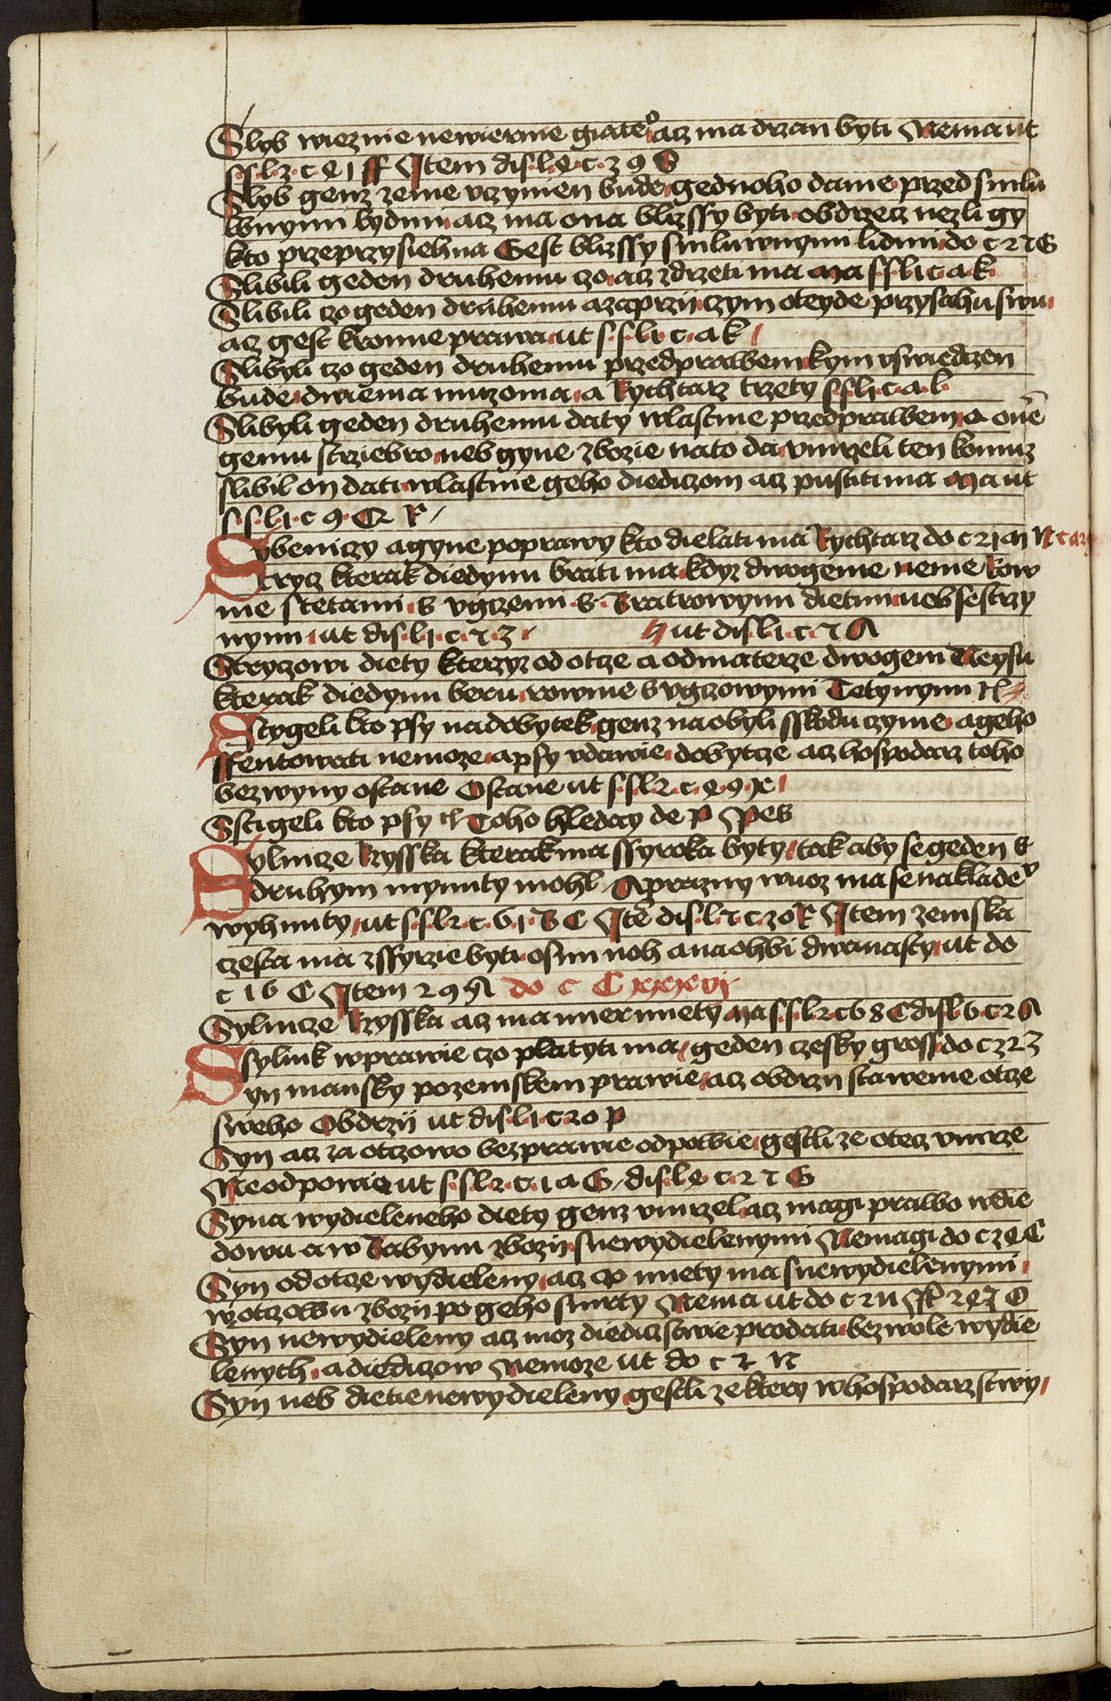 Slyb wieznie newiernie giate°, acz ma drzan byti Nema ut
s s l 2 c 4 1 ff Item dis l 4 c 2 9 S
Slyb genz zeme vczynien bude gednoho danie przed smlu
wnymi lydmi acz ma ona blizssy byti obdrzecz nezli gy
kto przeprzysiehna Gest blizssy smluwnymi lidmi do c 2 7 G
Slibili geden druhemu czo acz zdrzeti ma Ma s s l 1 c a k
Slibili czo geden druhemu a zaprzi czym oteyde przysahu swu
acz gest kromie prawa ut s s l 1 c a k
Slibyli czo geden druhemu przed prawem kym vswiedczen
bude dwiema muzoma a Rychtarz trzety s s l 1 c a l
Slibyli geden druhemu daty wlastnie przed prawem a on
gemu strziebro neb gyne zbozie na to da vmrzeli ten komuz
slibil on dati wlastnie geho diediczom acz pustiti ma Ma ut
s s l 1 c 9 R
Sybeniczy a gyne poprawy kto dielati ma Rychtarz do c 2
Strycz kterak diedynu brati ma kdyz dwogenie neme Row
nie s tetami s vgczemi s Bratrowymi dietmi neb sestrzy
nymi ut dis l 1 c 7 3 ut dis l 1 c 7 A
Stryczowi diety kterzyz od otcze a od materze dwogem Neysu
kterak diedynu beru rownie s vgczowymi Tetynymi
Stygeli kto psy na dobytek genz na obyli sskodu czynie a geho
ffentowati nemoze a psy vdawie dobytcze acz hospodarz toho
bez wyny ostane Ostane ut s s l 2 c 4 9
Sstigeli kto psy Toho hleday de P Pes
Sylnicze Rysska kterak ma ssyroka byty tak aby se geden s
druhym mynuty mohl A prazny wuoz ma se nakladenemu
wyhnuty ut s s l 2 c 6 1 B C Ite dis l 7 c 20 R Item zemska
czesta ma zssyrzie byti osm noh a na ohbi dwanasty ut do
c 1 6 C Item 2 9 A do c C xxxvi
Sylnicze Rysska acz ma mier mety Ma s s l 2 c 6 8 C dis l 6 c 2 A
Ssylink w prawie czo platyti ma geden czesky gross do c 2 2 3
Syn mansky pozemskem prawie acz obdrzi staweme otcze
sweho Obdrzij ut dis l 1 c 20 P
Syn acz za otczowo bezprawie odpowie gestli ze otecz vmrze
Neodpowie ut s s l 2 c 1 a G dis l 4 c 2 7 G
Syna wydieleneho diety genz vmrzel acz magi prawo w die
dowu a w Babynu zbozij s newydielenymi Nemagi do c 2 4 C
Syn od otcze wydieleny acz czo miety ma s newydielenymi
w otczowu zbozij po geho smrty Nema ut do c 2
Syn newydieleny acz moz diediczstwie prodati bez wole wydie
lenych a diediczow Nemoze ut do c 2 N
Syn neb dietie newydieleny gestli ze ktery w hospodarzstwy